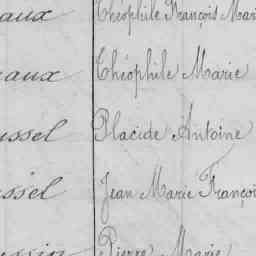 aux Théophile François Mari
aux Théophile Marie
ussel Placide Antoine
ussel Jean Marie Françoi
Pierre Marie